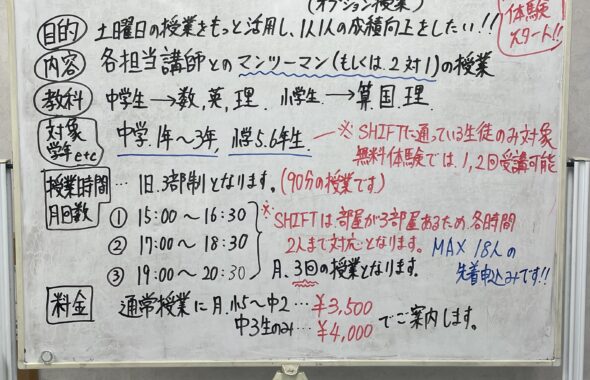 (オプション授業)
体験
スタート!!
目的 土曜日の授業をもっと活用し、1人1人の成績向上をしたい!!
内容 各担当講師とのマンツーマン(もしくは2対1)の授業
教科 中学生→数,英,理. 小学生→算.国.理.
対象
学年etc
中学.1年〜3年, 小学5.6年生.
※SHIFTに通っている生徒のみ対象
無料体験では、1,2回受講可能
授業時間
月回数
…1日.3部制となります。(90分の授業です)
① 15:00〜16:30
② 17:00〜18:30
③ 19:00〜20:30
※SHIFTは、部屋が3部屋あるため、各時間
2人まで対応となります。
MAX 18人の
先着申込みです!!
月.3回の授業となります.
料金 通常授業に月.小5〜中2…¥3,500
中3生のみ…¥4,000
でご案内します。